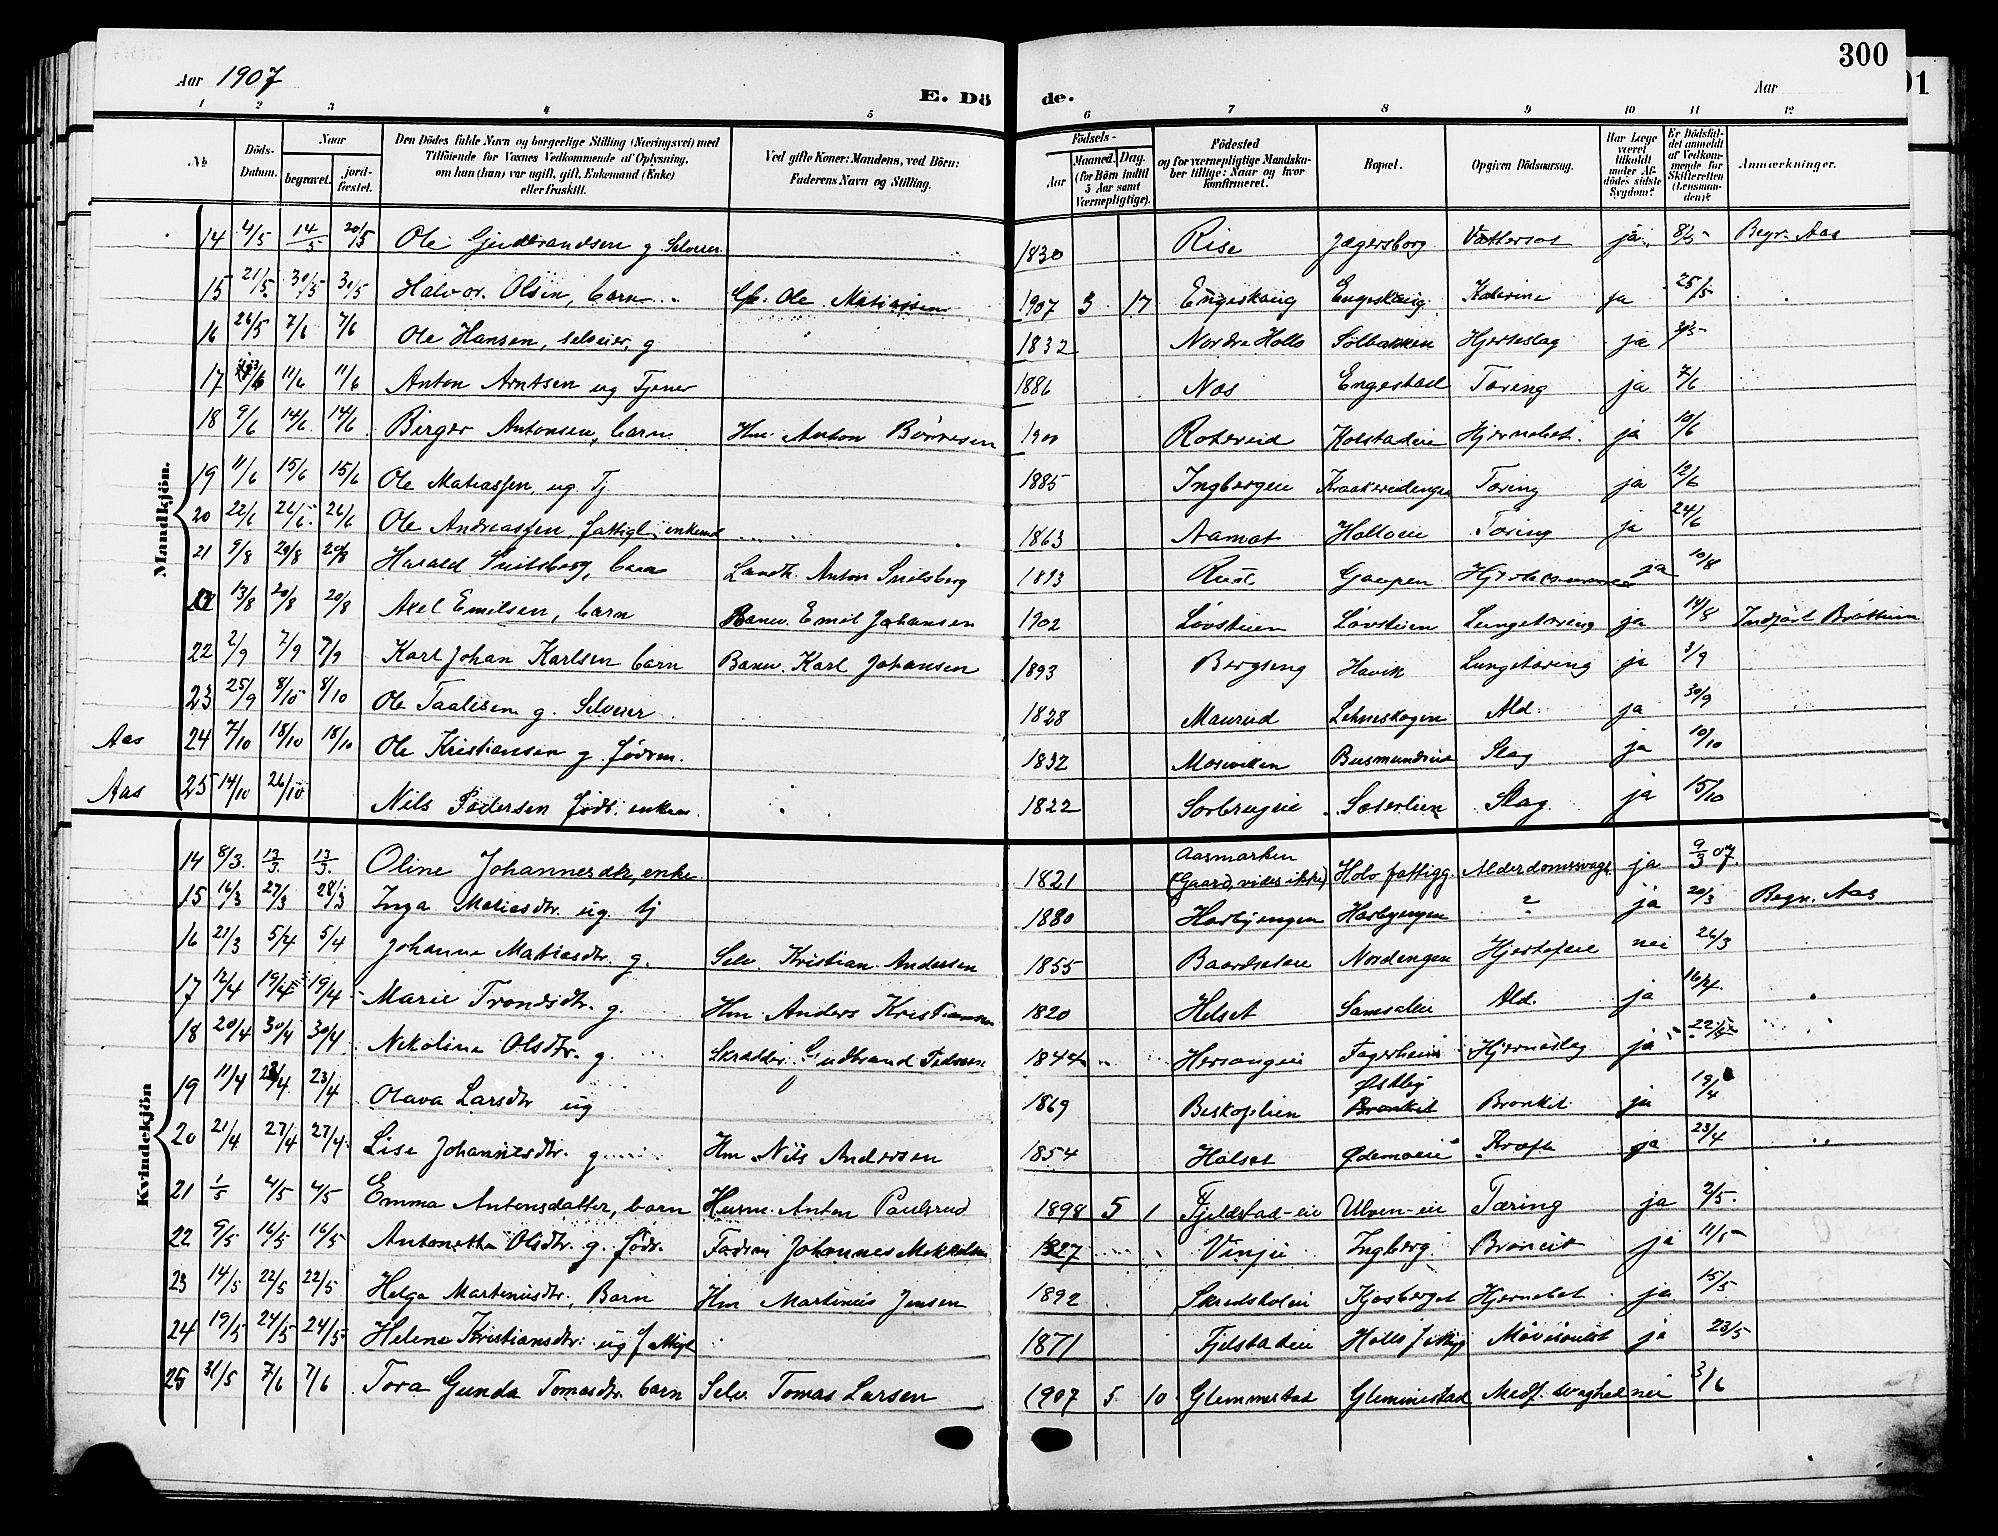 300
Aar 1907
Aar
E. Dö de.
1 2 3 4 5 6 7 8 9 10 11 12
No
Döds-Datum.
Naar
begravet.
jord-fæstet.
Den Dödes fulde Navn og borgerlige Stilling (Næringsvei) med
Tilföiende for Voxnes Vedkommende af Oplysning,
om han (hun) var ugift, gift, Enkemand (Enke)
eller fraskilt.
Ved gifte Koner: Mandens, ved Börn:
Faderens Navn og Stilling.
Födsels-
Aar
Maaned. Dag.
(for Börn indtil
5 Aar samt
Værnepligtige).
Födested
og for værnepligtige Mandska-
ber tillige: Naar og hvor
konfirmeret.
Bopæl.
Opgiven Dödsaarsag.
Har Læge
været
tilkaldt
under Af-
dödes sidste
Sygdom?
Er Dödsfal-
det anmeldt
af Vedkom-
mende for
Skifteretten
(Lensman-
den)?
Anmærkninger.
Mandkjön.
14 4/5 14/5 20/5 Ole Gudbrandsen g. Selveier 1830 Rise Jægersborg Vattersot ja 8/5 Begr. Aas
15 21/5 30/5 30/5 Halvor Olsen, barn Ole Matiassen 1907 3 17 Engeskaug Engeskaug ja 25/5
16 26/5 7/6 7/6 Ole Hansen, selveier, g 1832 Nordre Holls Solbakken Hjerteslag ja
17 11/6 11/6 Anton Arntsen ug Tjener 1886 Nos Engestad Tæring ja 7/6
18 9/6 14/6 14/6 Birger Antonsen, barn Hm. Anton Børresen 1900 Rotereid Kolstadeie Hjernebet. ja 10/6
19 11/6 15/6 15/6 Ole Matiassen, ug. Tj 1885 Ingbergeie Kraakereidengen Tæring ja 12/6
20 22/6 26/6 26/6 Ole Andreassen, fattigl. enkemd 1863 Aamot Holloeie Tæring ja 24/6
21 9/8 20/8 20/8 Harald Snilsberg, barn Landh. Anton Snilsberg 1893 Rust Gaupen ja 10/8
13/8 20/8 20/8 Axel Emilsen, barn Banev. Emil Johansen 1902 Løvstuen Løvstuen Lungetæring ja 14/8 Indført Brøttum
22 2/9 7/9 7/9 Karl Johan Karlsen barn Banev. Karl Johansen 1893 Bergseng Havik Lungetæring ja 3/9
23 25/9 8/10 8/10 Ole Taalesen g. Selveier 1828 Maurud Lehneskogen Ald. ja 30/9
Aas 24 7/10 18/10 18/10 Ole Kristiansen g. fødrm. 1832 Moseviken Busmundeie Slag ja 10/10
Aas 25 14/10 26/10 Nils Pedersen fødr. enkem. 1822 Sorbrugeie Sæterlien Slag. ja 15/10
Kvindekjön
14 8/3. 13/3 13/3. Oline Johannesdtr, enke 1821 Aasmarken
(Gaard, vides ikke) Holo fattigg. Alderdomssvagh. ja 9/3 07.
15 16/3 27/3 28/3 Inga Mariasdtr. ug. tj 1880 Harbyengen Harbyengen ? ja 20/3 Begr. Aas
16 21/3 5/4 5/4 Johanne Matiasdtr. g. Selv. Kristian Andersen 1855 Baardsetøie Nordengen Hjertefeil nei 26/3
17 12/4 19/4 19/4 Marie Trondsdtr. g. Hm Anders Kristiansen 1820 Helset Samsaleie Ald. ja 16/4
18 20/4 30/4 30/4 Nikoline Olsdtr. g. Skrædder Gudbrand Pedersen 1844 Hersaugeie Fagerheim Hjerneslag ja
19 11/4 23/4 23/4 Olava Larsdtr ug 1869 Beskoplien Østby
Bronkit Bronkit. ja 19/4
20 21/4 27/4 27/4 Lise Johannesdtr. g Hm Nils Andersen 1854 Halset Ødemoeie Kræft ja 23/4
21 1/5 4/5 4/5 Emma Antonsdatter, barn Husm. Anton Paulsrud 1898 5 1 Fjeldstad-eie Ulven-eie Tæring ja 2/5.
22 9/5 16/5 16/5 Antonetta Olsdtr. g. fødr. Fødrm Johannes Mekkelsen 1827 Vinju Ingberg Bronkit ja 11/5
23 14/5 22/5 22/5 Helga Martinusdtr, Barn Hm Martinus Jensen 1892 Skredsholeie Kjosberget Hjernebet ja 15/5
24 19/5 24/5 24/5 Helene Kristiansdtr: ug fattigl 1871 Fjelstadeie Hollo fattigg ja 23/5
25 31/5 7/6 7/6 Tora Gunda Tomasdtr. barn Selv. Tomas Larsen 1907 5 10 Glemmestad Glemmestad Medf. svaghed nei 3/6